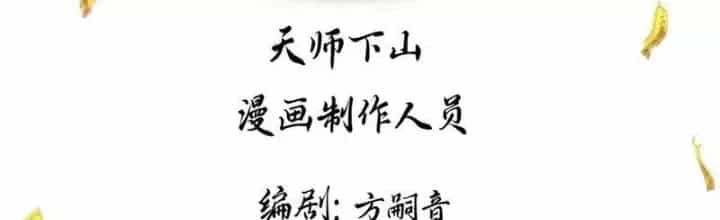 天师下山
漫画制作人员
编剧: 方嗣音